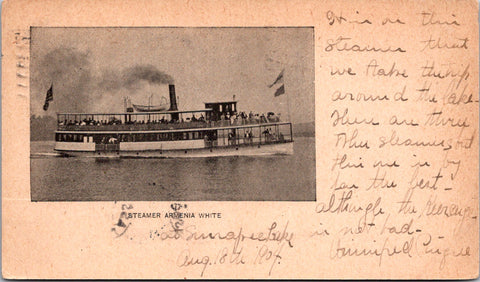 It is on this
steamer that
we take the trip
around the lake.
There are three
other steamers but
this one is by
far the best—
although, the
is not bad—
STEAMER ARMENIA WHITE
Sunapee Lake
Aug. 18th 1907.